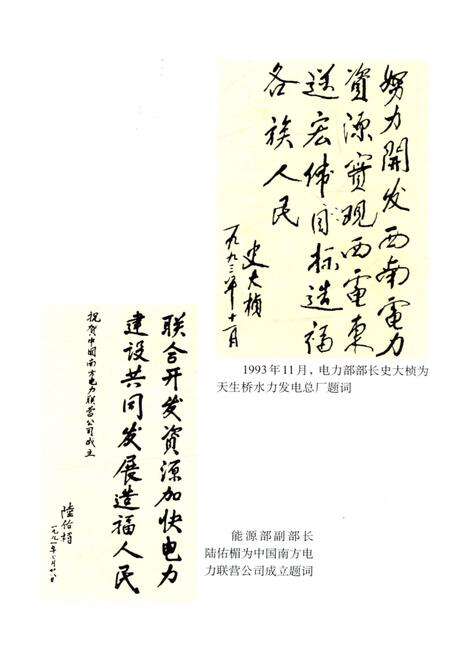 努力開发西南電力
资源實现西電東
送宏伟目标造福
各族人民
史大桢
一九九三年十一月
1993年11月，电力部部长史大桢为
天生桥水力发电总厂题词
联合开发資源加快电力
建设共同发展造福人民
祝贺中国南方电力联营公司成立
陸佑楣
能源部副部长
陆佑楣为中国南方电
力联营公司成立题词